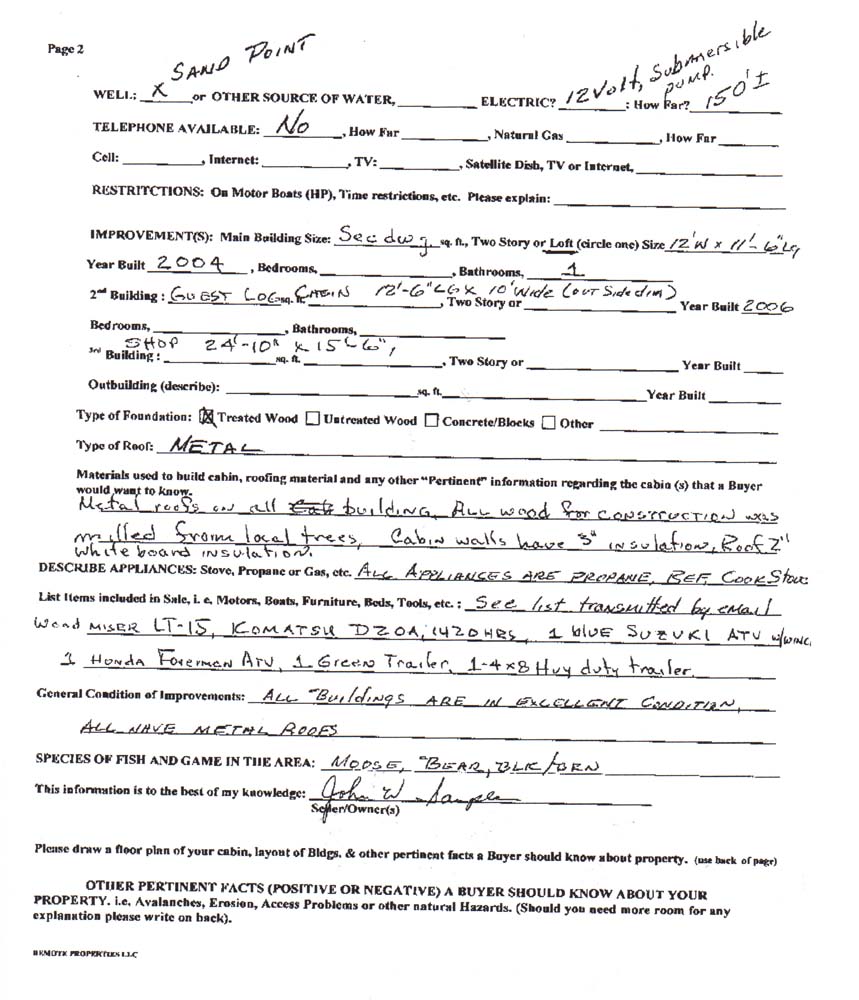 Page 2
SAND POINT
12 Volt, Submersible
pump.
WELL: X or OTHER SOURCE OF WATER, ELECTRIC? : How Far? 150' ±
TELEPHONE AVAILABLE: No, How Far , Natural Gas , How Far
Cell: , Internet: , TV: , Satellite Dish, TV or Internet,
RESTRITCTIONS: On Motor Boats (HP), Time restrictions, etc. Please explain:
IMPROVEMENT(S): Main Building Size: See dwg sq. ft., Two Story or Loft (circle one) Size 12'W x 11'-6" Lg
Year Built 2004 , Bedrooms, , Bathrooms, 1
2nd Building : GUEST LOG sq. ft. CABIN 12'-6" LG X 10' Wide (out Side dim) , Two Story or Year Built 2006
Bedrooms, , Bathrooms,
SHOP 24'-10" x 15'-6",
3rd Building : sq. ft. , Two Story or Year Built
Outbuilding (describe): sq. ft. Year Built
Type of Foundation: ☒ Treated Wood ☐ Untreated Wood ☐ Concrete/Blocks ☐ Other
Type of Roof: METAL
Materials used to build cabin, roofing material and any other "Pertinent" information regarding the cabin (s) that a Buyer
would want to know.
Metal roofs on all building, ALL wood for CONSTRUCTION was
milled from local trees, Cabin walls have 3" insulation, Roof 2"
white board INSULATION.
DESCRIBE APPLIANCES: Stove, Propane or Gas, etc. ALL APPLIANCES ARE PROPANE, REF, Cook Stove
List Items included in Sale, i. e, Motors, Boats, Furniture, Beds, Tools, etc. : See list transmitted by email
Wood MISER LT-15, KOMATSU D20A, 1420 HRS, 1 blue SUZUKI ATV w/WINC,
1 Honda Foreman ATV, 1 Green Trailer, 1-4x8 Hvy duty trailer.
General Condition of Improvements: ALL Buildings ARE IN EXCELLENT CONDITION,
ALL HAVE METAL ROOFS
SPECIES OF FISH AND GAME IN THE AREA: MOOSE, BEAR, BLK/BRN
This information is to the best of my knowledge: John W Sample
Seller/Owner(s)
Please draw a floor plan of your cabin, layout of Bldgs, & other pertinent facts a Buyer should know about property. (use back of page)
OTHER PERTINENT FACTS (POSITIVE OR NEGATIVE) A BUYER SHOULD KNOW ABOUT YOUR
PROPERTY. i.e, Avalanches, Erosion, Access Problems or other natural Hazards. (Should you need more room for any
explanation please write on back).
REMOTE PROPERTIES LLC